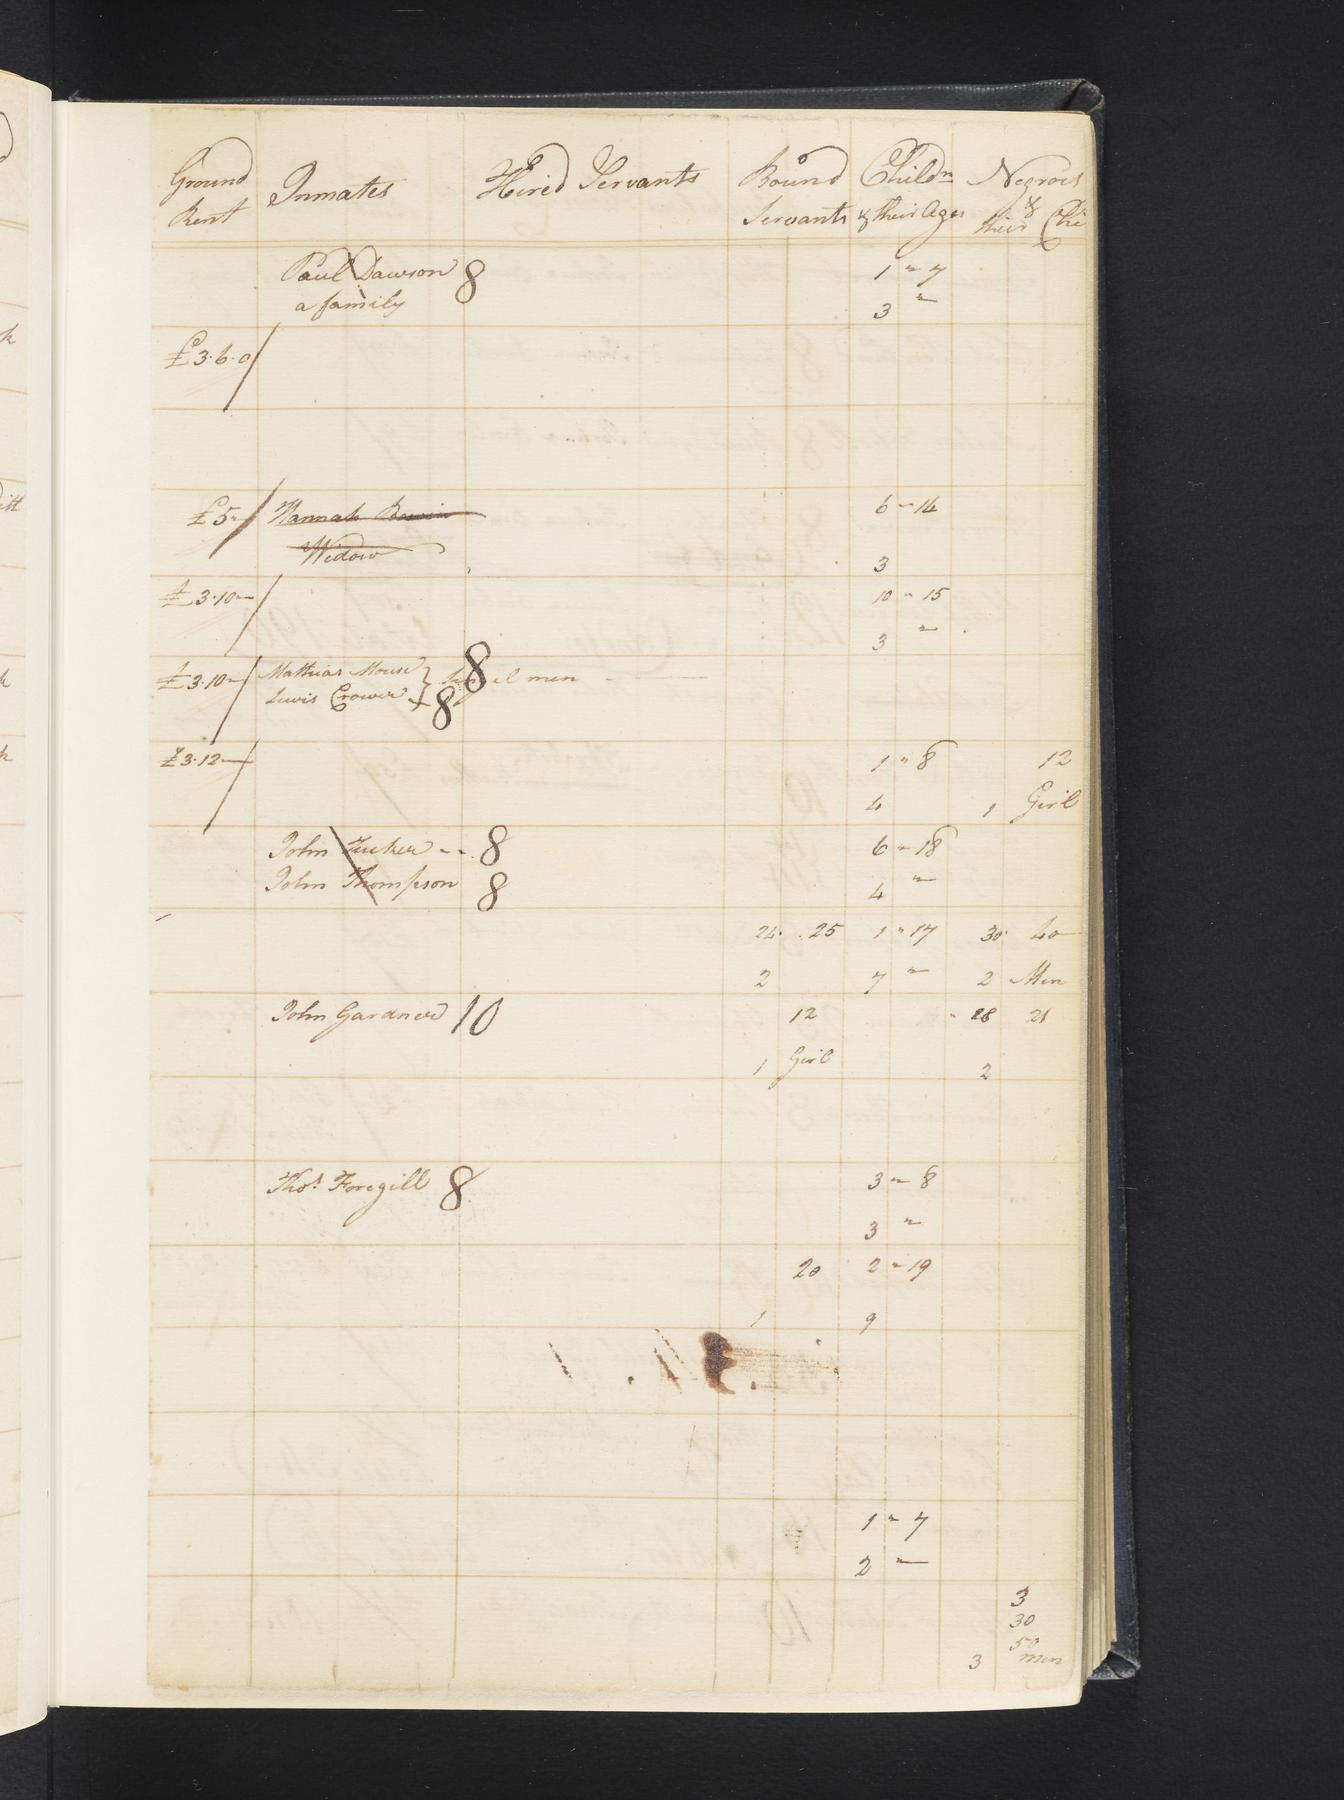 Ground Inmates Hired Servants Bound Childn Negroes
Rent Servants & their Ages & their Chi
Paul Dawson 8 1 " 7
a family 3 "
£3.6.0/
£5"/ Hannah 6 " 14
Widow 3
£3.10"/ 10 " 15
3 "
£3.10"/ Mathias Mouse } 8 el men
Lewis Crower } 8
£3.12/ 1 " 8 12
4 1 Girl
John Tucker -- 8 6 " 18
John Thompson 8 4 "
24. .25 1 " 17 30. 40
2 7 " 2 Men
John Gardner 10 12 28 21
1 Girl 2
Thos. Foregill 8 3 " 8
3 "
20 2 " 19
1 9
1 " 7
2 "
3
30
50
3 men